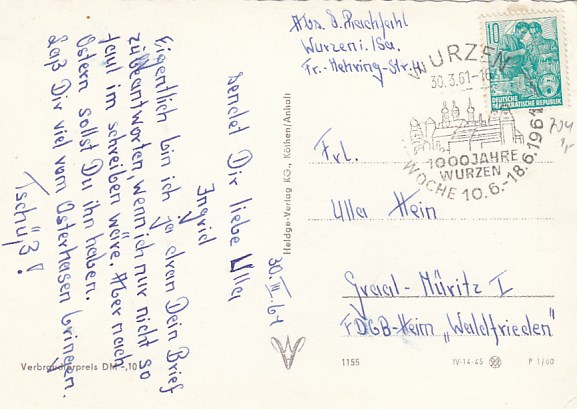 Eigentlich bin ich ja dran Dein Brief
zu beantworten, wenn ich nur nicht so
faul im schreiben wäre. Aber nach
Ostern sollst Du ihn haben.
Laß Dir viel vom Osterhasen bringen.
Tschüß!
sendet Dir liebe Ulla
Ingrid
30. III. 61
Verbraucherpreis DM -,10
Heldge-Verlag KG., Köthen/Anhalt
Abs. I.
Wurzen i./Sa.
Fr.-Mehring-Str.
10
DEUTSCHE
DEMOKRATISCHE REPUBLIK
WURZEN
30.3.61-16
1000 JAHRE
WURZEN
WOCHE 10.6.-18.6.1961
Frl.
Ulla Hein
Graal-Müritz I
FDGB-Heim „Waldfrieden"
1155
IV-14-45
P 1/60